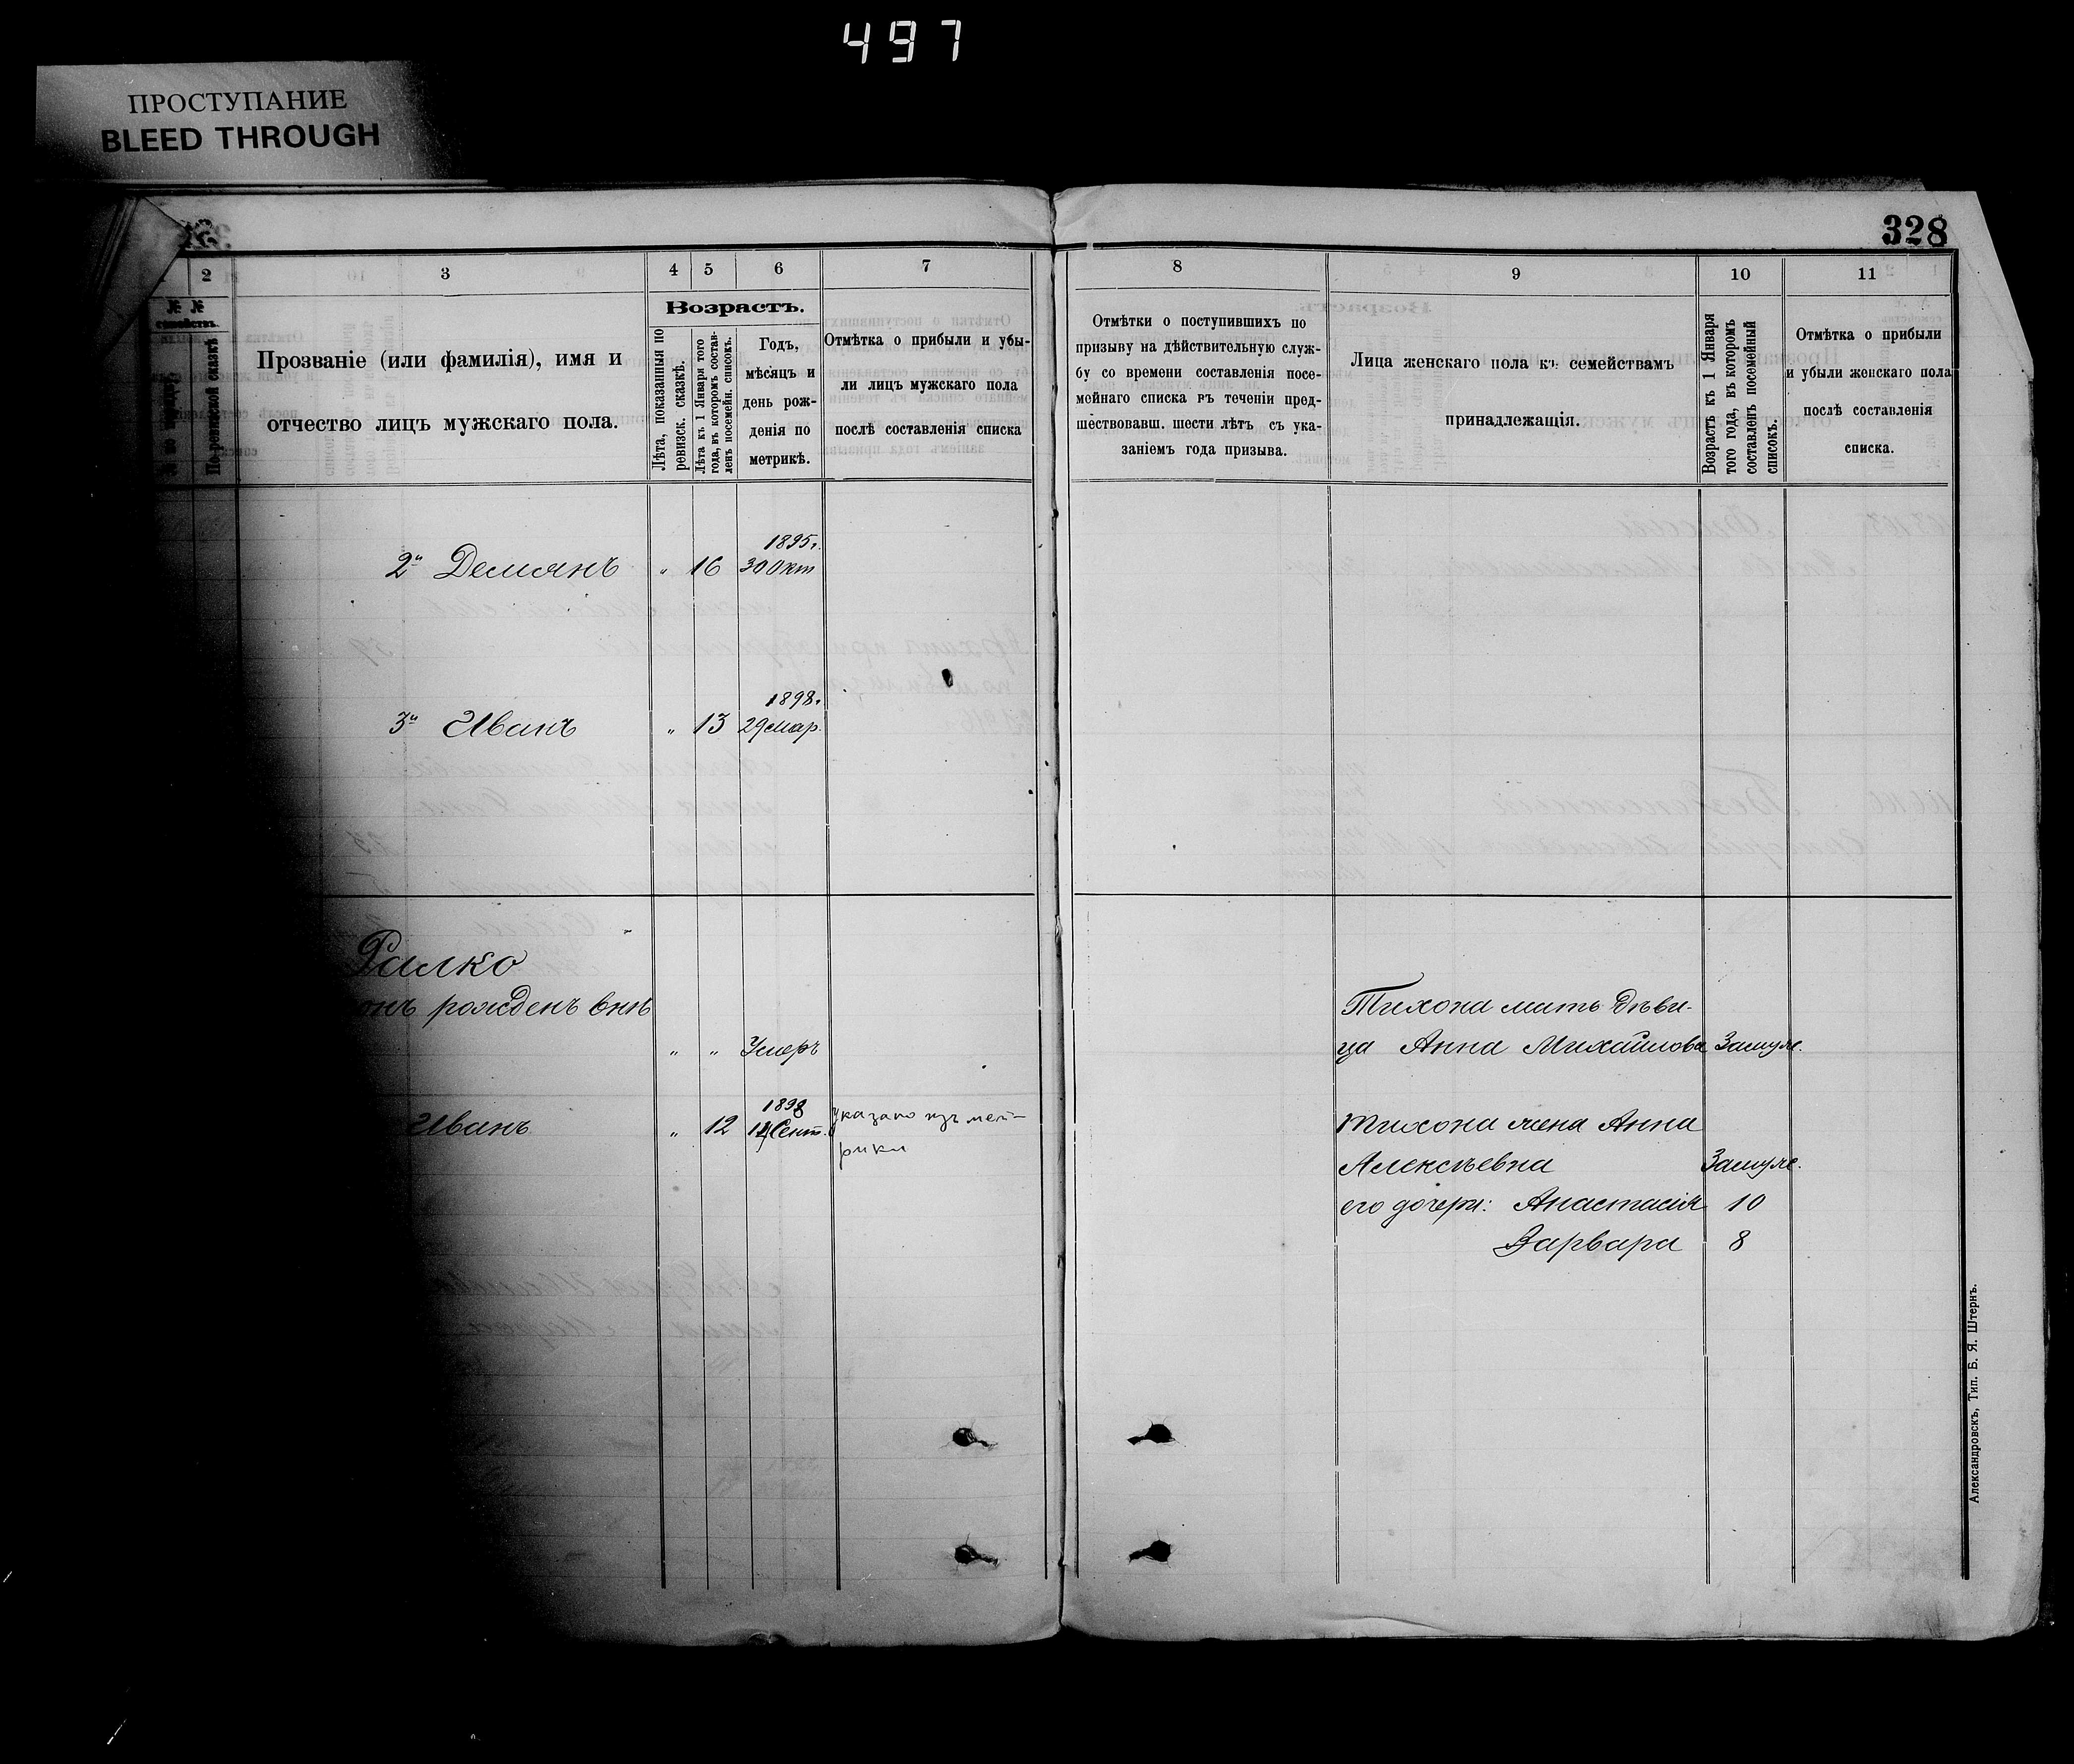 497
ПРОСТУПАНИЕ
BLEED THROUGH
328
2
3
4
5
6
7
8
9
10
11
№ №
семействъ.
По ревизской сказкѣ
Прозваніе (или фамилія), имя и
отчество лицъ мужскаго пола.
Возрастъ.
Лѣта, показанныя по
ревизск. сказкѣ.
Лѣта къ 1 Января того
года, въ которомъ состав-
ленъ посемейн. списокъ.
Годъ,
мѣсяцъ и
день рож-
денія по
метрикѣ.
Отмѣтка о прибыли и убы-
ли лицъ мужскаго пола
послѣ составленія списка
Отмѣтки о поступившихъ по
призыву на дѣйствительную служ-
бу со времени составленія посе-
мейнаго списка въ теченіи пред-
шествовавш. шести лѣтъ съ ука-
заніемъ года призыва.
Лица женскаго пола къ семействамъ
принадлежащія.
Возрастъ къ 1 Января
того года, въ которомъ
составленъ посемейный
списокъ.
Отмѣтка о прибыли
и убыли женскаго пола
послѣ составленія
списка.
1895г.
2й Демянъ „ 16 30 Окт
1898г.
3й Иванъ „ 13 29 мар.
Ралко
онъ рожденъ внѣ
„ „ Умеръ
1898
Иванъ „ 12 Сент.
указано изъ мет-
рики
Тихона мать дѣви-
ца Анна Михайлова Замуж.
Тихона жена Анна
Алексѣевна Замуж.
его дочери: Анастасія 10
Варвара 8
Александровскъ, Тип. Б. Я. Штернъ.